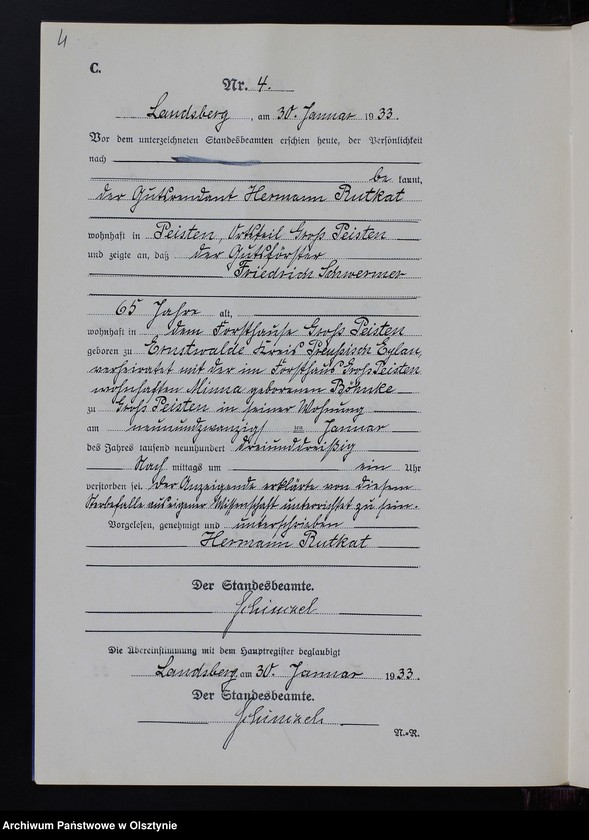 4
C.
Nr. 4.
Landsberg, am 30. Januar 1933.
Vor dem unterzeichneten Standesbeamten erschien heute, der Persönlichkeit
nach
be kannt,
der Gutsrendant Hermann Rutkat
wohnhaft in Peisten, Ortsteil Groß Peisten
und zeigte an, daß der Gutsförster
Friedrich Schwermer
65 Jahre alt,
wohnhaft in dem Forsthause Groß Peisten
geboren zu Ernstwalde Kreis Preußisch Eylau,
verheiratet mit der im Forsthaus Groß Peisten
wohnhaften Minna geborenen Böhnke
zu Groß Peisten in seiner Wohnung
am neunundzwanzigsten Januar
des Jahres tausend neunhundert dreiunddreißig
Nach mittags um ein Uhr
verstorben sei. Der Anzeigende erklärte von diesem
Sterbefalle aus eigener Wissenschaft unterrichtet zu sein.
Vorgelesen, genehmigt und unterschrieben
Hermann Rutkat
Der Standesbeamte.
Schinkel
Die Übereinstimmung mit dem Hauptregister beglaubigt
Landsberg am 30. Januar 1933.
Der Standesbeamte.
Schinkel
N.-R.
Archiwum Państwowe w Olsztynie